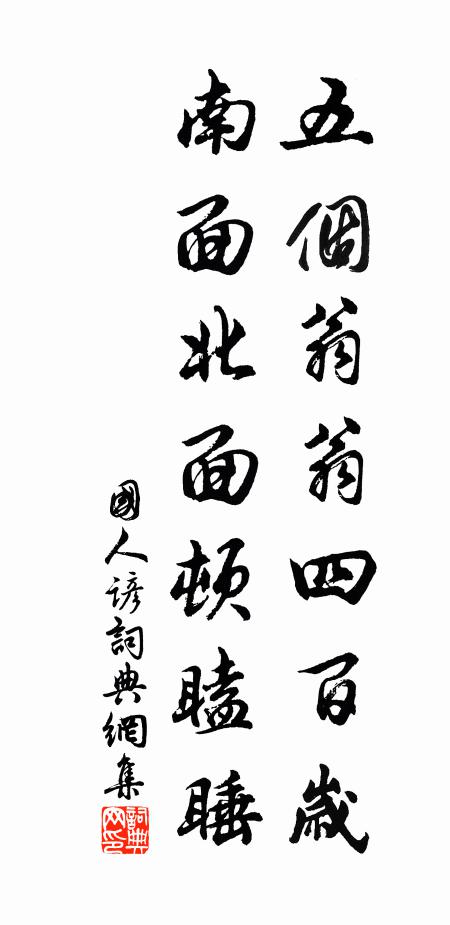 五個翁翁四百歲
南面北面頓瞌睡
國人諺詞典網集
詞典网印